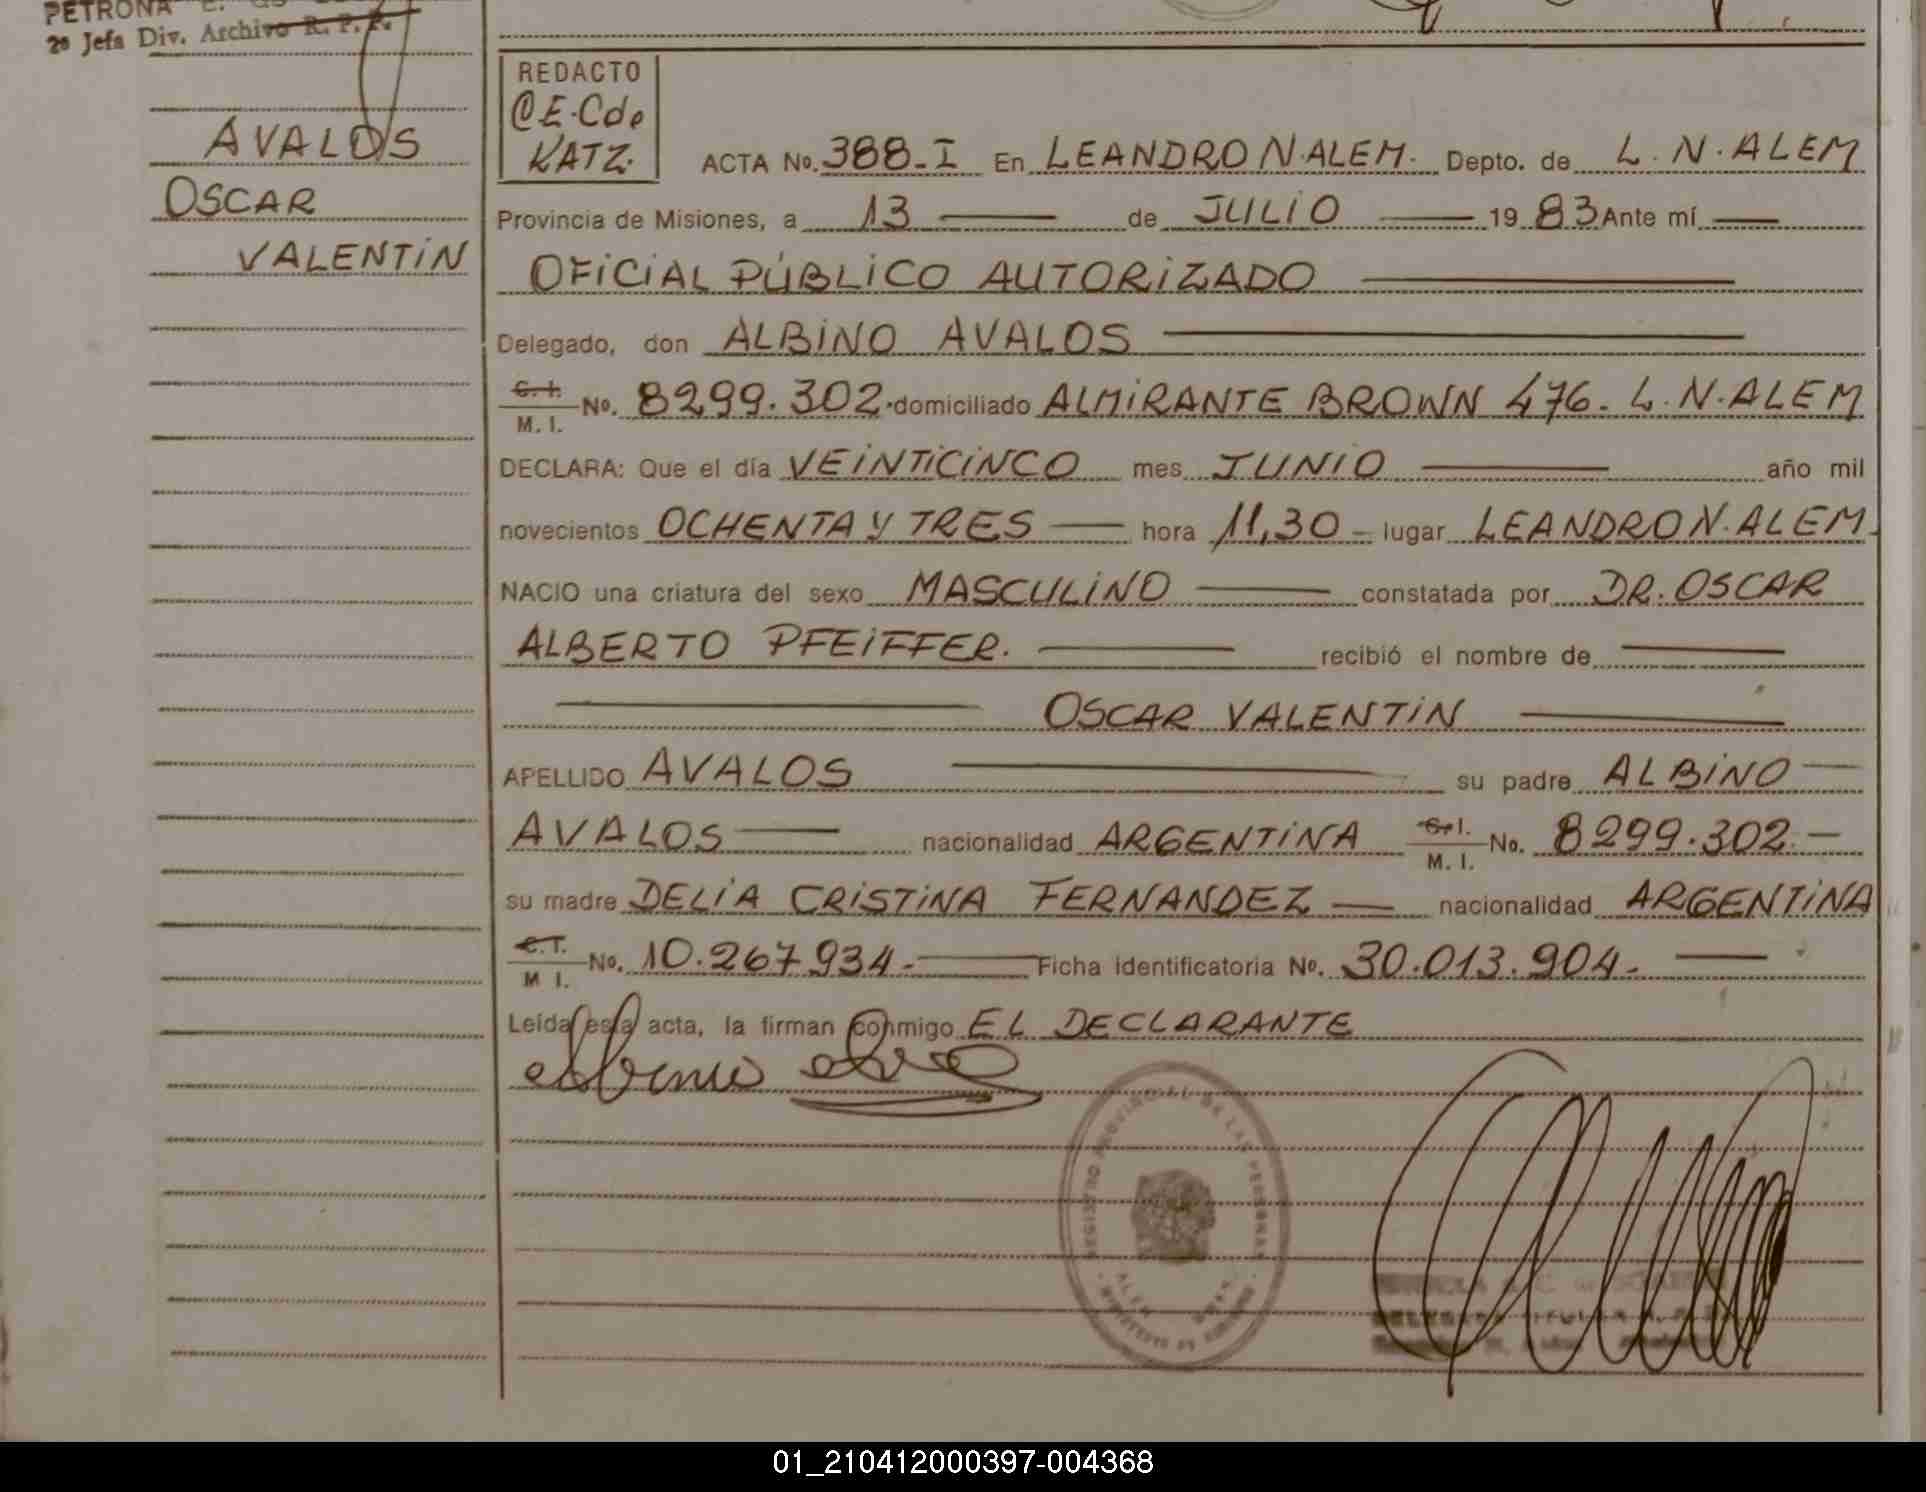 PETRONA E.
2º Jefa Div. Archivo R. P. P.
AVALOS
OSCAR
VALENTIN
REDACTO
C.E.C de
KATZ.
ACTA No. 388-I En LEANDRO N. ALEM. Depto. de L. N. ALEM
Provincia de Misiones, a 13 de JULIO 19 83 Ante mí
OFICIAL PÚBLICO AUTORIZADO
Delegado, don ALBINO AVALOS
C. I.
M. I. No. 8299.302. domiciliado ALMIRANTE BROWN 476. L. N. ALEM
DECLARA: Que el día VEINTICINCO mes JUNIO año mil
novecientos OCHENTA Y TRES hora 11,30 lugar LEANDRO N. ALEM.
NACIO una criatura del sexo MASCULINO constatada por DR. OSCAR
ALBERTO PFEIFFER. recibió el nombre de
OSCAR VALENTIN
APELLIDO AVALOS su padre ALBINO
AVALOS nacionalidad ARGENTINA C. I. M. I. No. 8299.302.
su madre DELIA CRISTINA FERNANDEZ nacionalidad ARGENTINA
C. I.
M. I. No. 10.267.934. Ficha identificatoria No. 30.013.904.
Leída esta acta, la firman conmigo EL DECLARANTE
REGISTRO PROVINCIAL DE LAS PERSONAS
ALEM
MINISTERIO DE GOBIERNO
01_210412000397-004368